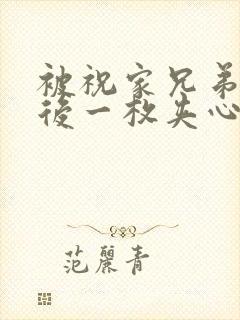 被祝家兄弟
後一枚失心
范麗青